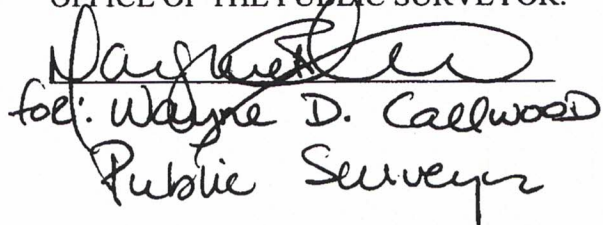 OFFICE OF THE PUBLIC SURVEYOR:
for: Wayne D. Callwood
Public Surveyor